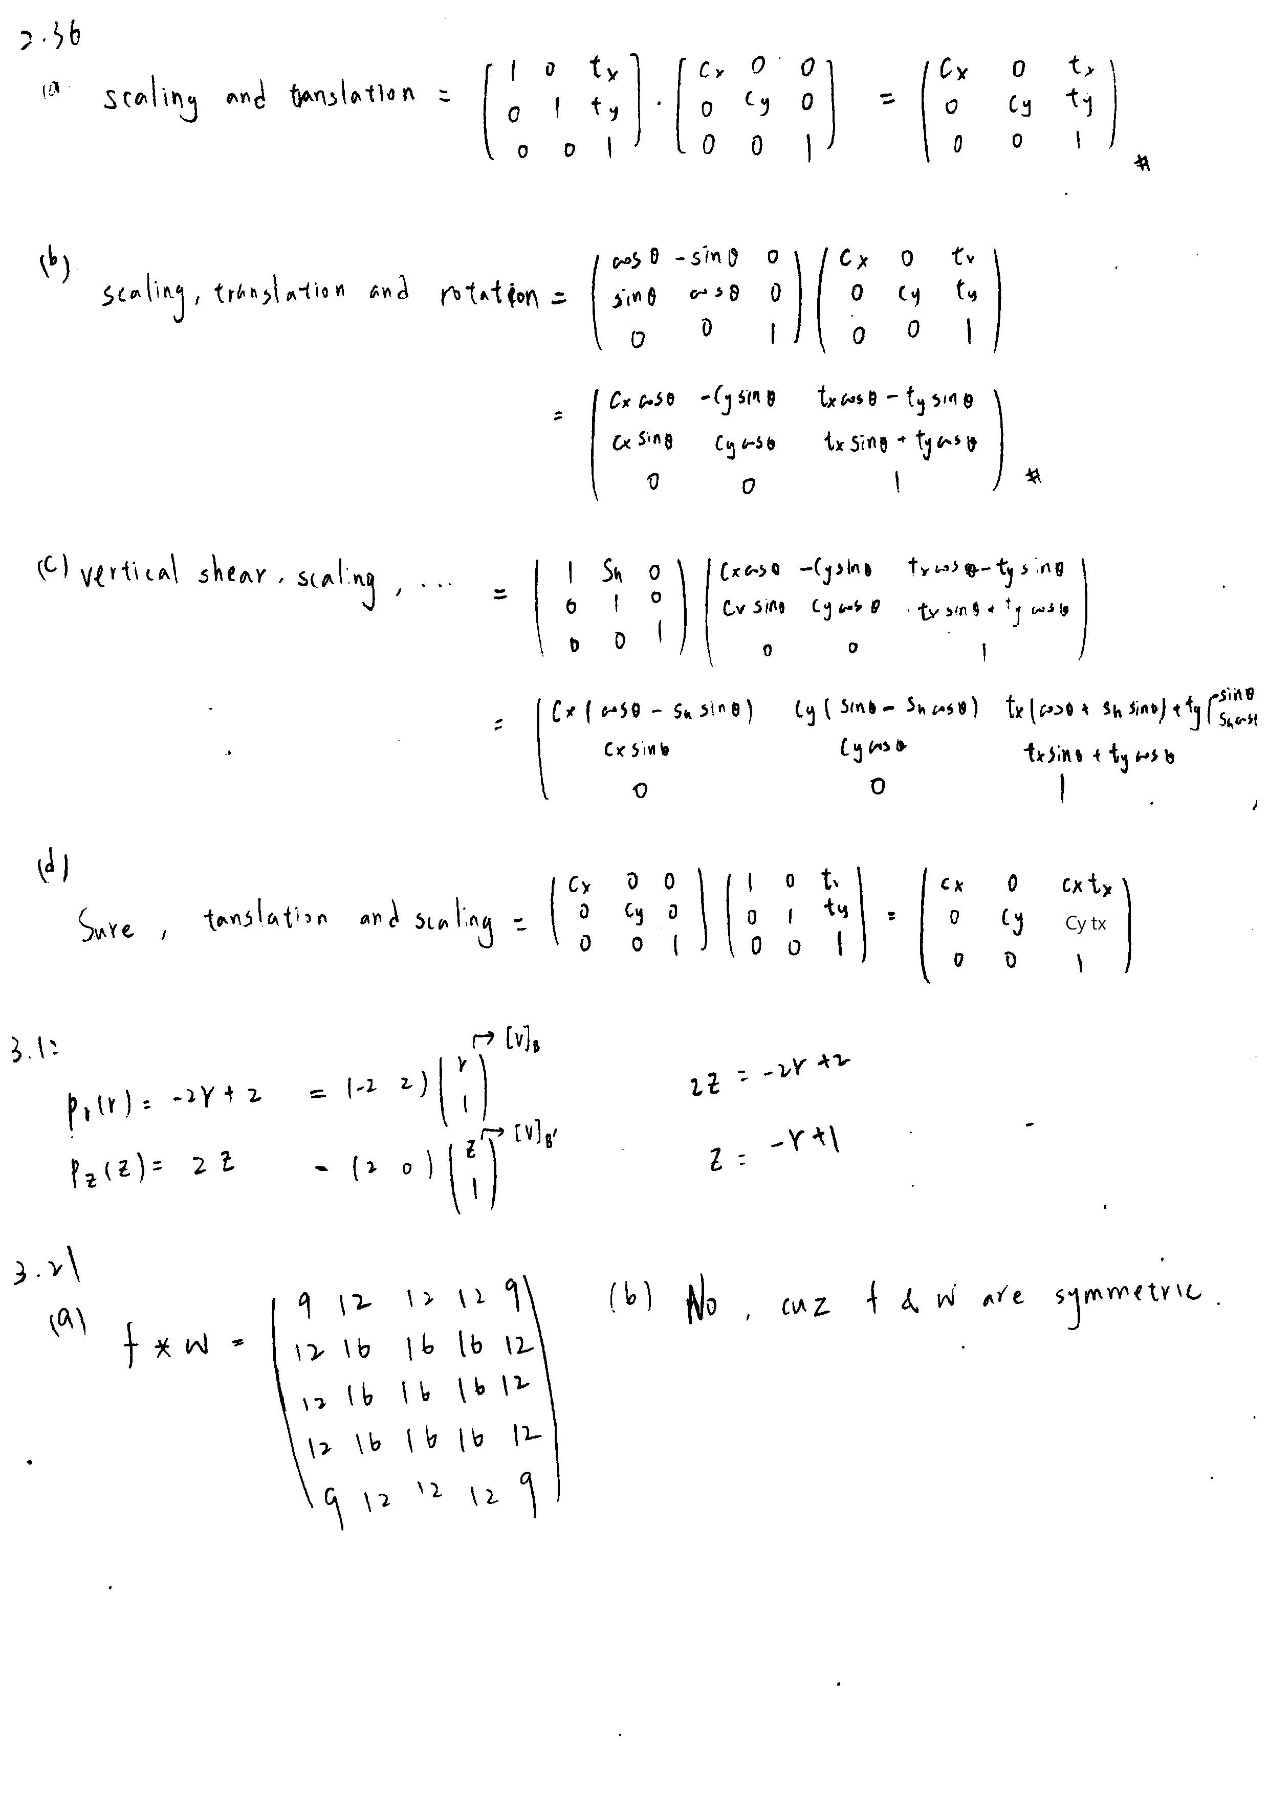 2.36
(a) scaling and tanslation = ( 1 0 tx ; 0 1 ty ; 0 0 1 ) · ( Cx 0 0 ; 0 Cy 0 ; 0 0 1 ) = ( Cx 0 tx ; 0 Cy ty ; 0 0 1 ) #
(b) scaling, translation and rotation = ( cosθ -sinθ 0 ; sinθ cosθ 0 ; 0 0 1 ) ( Cx 0 tx ; 0 Cy ty ; 0 0 1 )
= ( Cx cosθ -Cy sinθ tx cosθ - ty sinθ ; Cx sinθ Cy cosθ tx sinθ + ty cosθ ; 0 0 1 ) #
(c) vertical shear, scaling, ... = ( 1 Sh 0 ; 0 1 0 ; 0 0 1 ) ( Cx cosθ -Cy sinθ tx cosθ - ty sinθ ; Cx sinθ Cy cosθ tx sinθ + ty cosθ ; 0 0 1 )
= ( Cx ( cosθ - Sh sinθ ) Cy ( sinθ - Sh cosθ ) tx ( cosθ + Sh sinθ ) + ty ( -sinθ Sh cosθ ; Cx sinθ Cy cosθ tx sinθ + ty cosθ ; 0 0 1
(d)
Sure, tanslation and scaling = ( Cx 0 0 ; 0 Cy 0 ; 0 0 1 ) ( 1 0 tx ; 0 1 ty ; 0 0 1 ) = ( Cx 0 Cx tx ; 0 Cy Cy tx ; 0 0 1 )
3.1:
Pr(r) = -2r + 2 = (-2 2) ( r ; 1 ) → [V]B 2z = -2r + 2
Pz(z) = 2z = (2 0) ( z ; 1 ) → [V]B' z = -r + 1
3.21
(a) f * w = ( 9 12 12 12 9 ; 12 16 16 16 12 ; 12 16 16 16 12 ; 12 16 16 16 12 ; 9 12 12 12 9 )
(b) No, cuz f & w are symmetric.